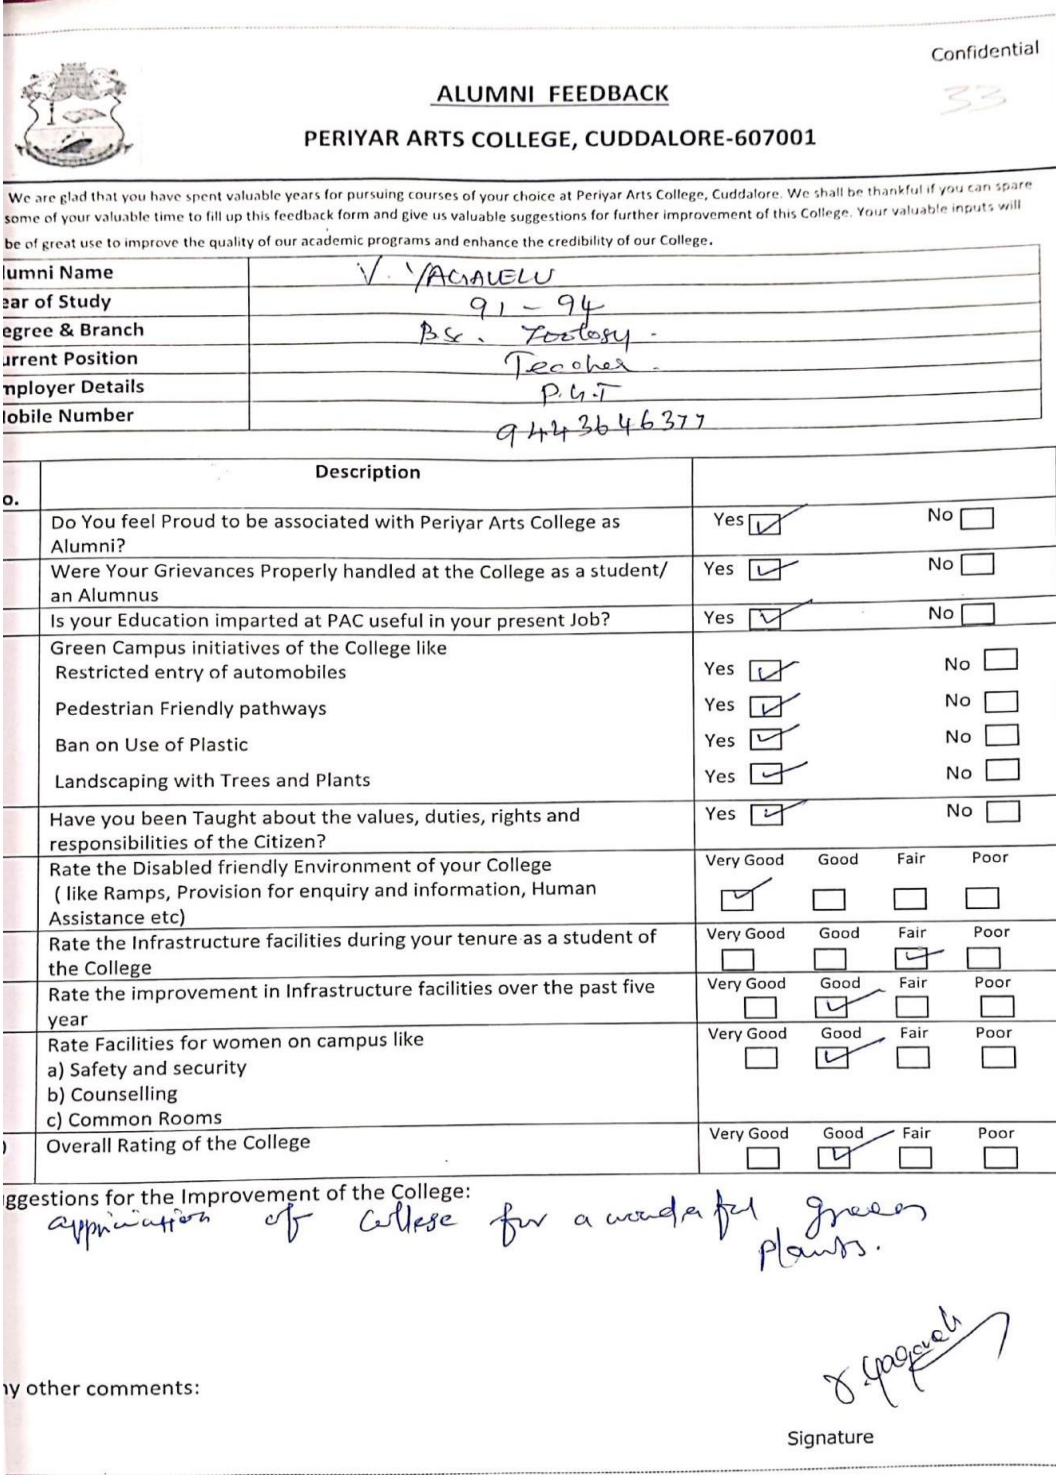 Confidential
33
ALUMNI FEEDBACK
PERIYAR ARTS COLLEGE, CUDDALORE-607001
We are glad that you have spent valuable years for pursuing courses of your choice at Periyar Arts College, Cuddalore. We shall be thankful if you can spare
some of your valuable time to fill up this feedback form and give us valuable suggestions for further improvement of this College. Your valuable inputs will
be of great use to improve the quality of our academic programs and enhance the credibility of our College.
lumni Name V. YAGAVELU
ear of Study 91 - 94
egree & Branch BSc. Zoology.
urrent Position Teacher.
mployer Details P.G.T
obile Number 9443646377
o. Description
Do You feel Proud to be associated with Periyar Arts College as Yes No
Alumni?
Were Your Grievances Properly handled at the College as a student/ Yes No
an Alumnus
Is your Education imparted at PAC useful in your present Job? Yes No
Green Campus initiatives of the College like
Restricted entry of automobiles Yes No
Pedestrian Friendly pathways Yes No
Ban on Use of Plastic Yes No
Landscaping with Trees and Plants Yes No
Have you been Taught about the values, duties, rights and Yes No
responsibilities of the Citizen?
Rate the Disabled friendly Environment of your College Very Good Good Fair Poor
( like Ramps, Provision for enquiry and information, Human
Assistance etc)
Rate the Infrastructure facilities during your tenure as a student of Very Good Good Fair Poor
the College
Rate the improvement in Infrastructure facilities over the past five Very Good Good Fair Poor
year
Rate Facilities for women on campus like Very Good Good Fair Poor
a) Safety and security
b) Counselling
c) Common Rooms
) Overall Rating of the College Very Good Good Fair Poor
ggestions for the Improvement of the College:
of College for a wonderful green
plants.
ny other comments:
Signature